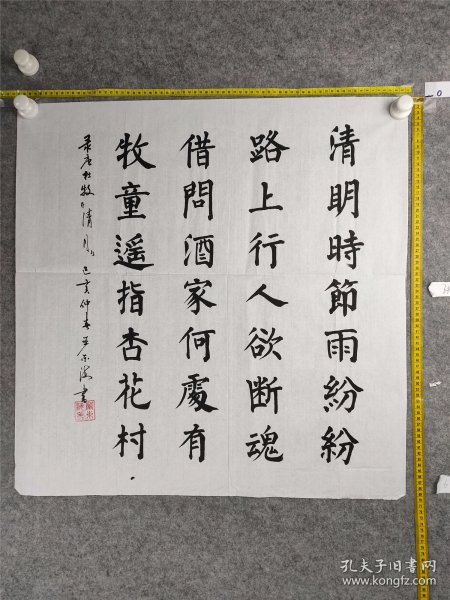 清明時節雨紛紛
路上行人欲断魂
借問酒家何處有
牧童遥指杏花村
录唐杜牧《清明》己亥仲春王
書
孔夫子旧书网
www.kongfz.com